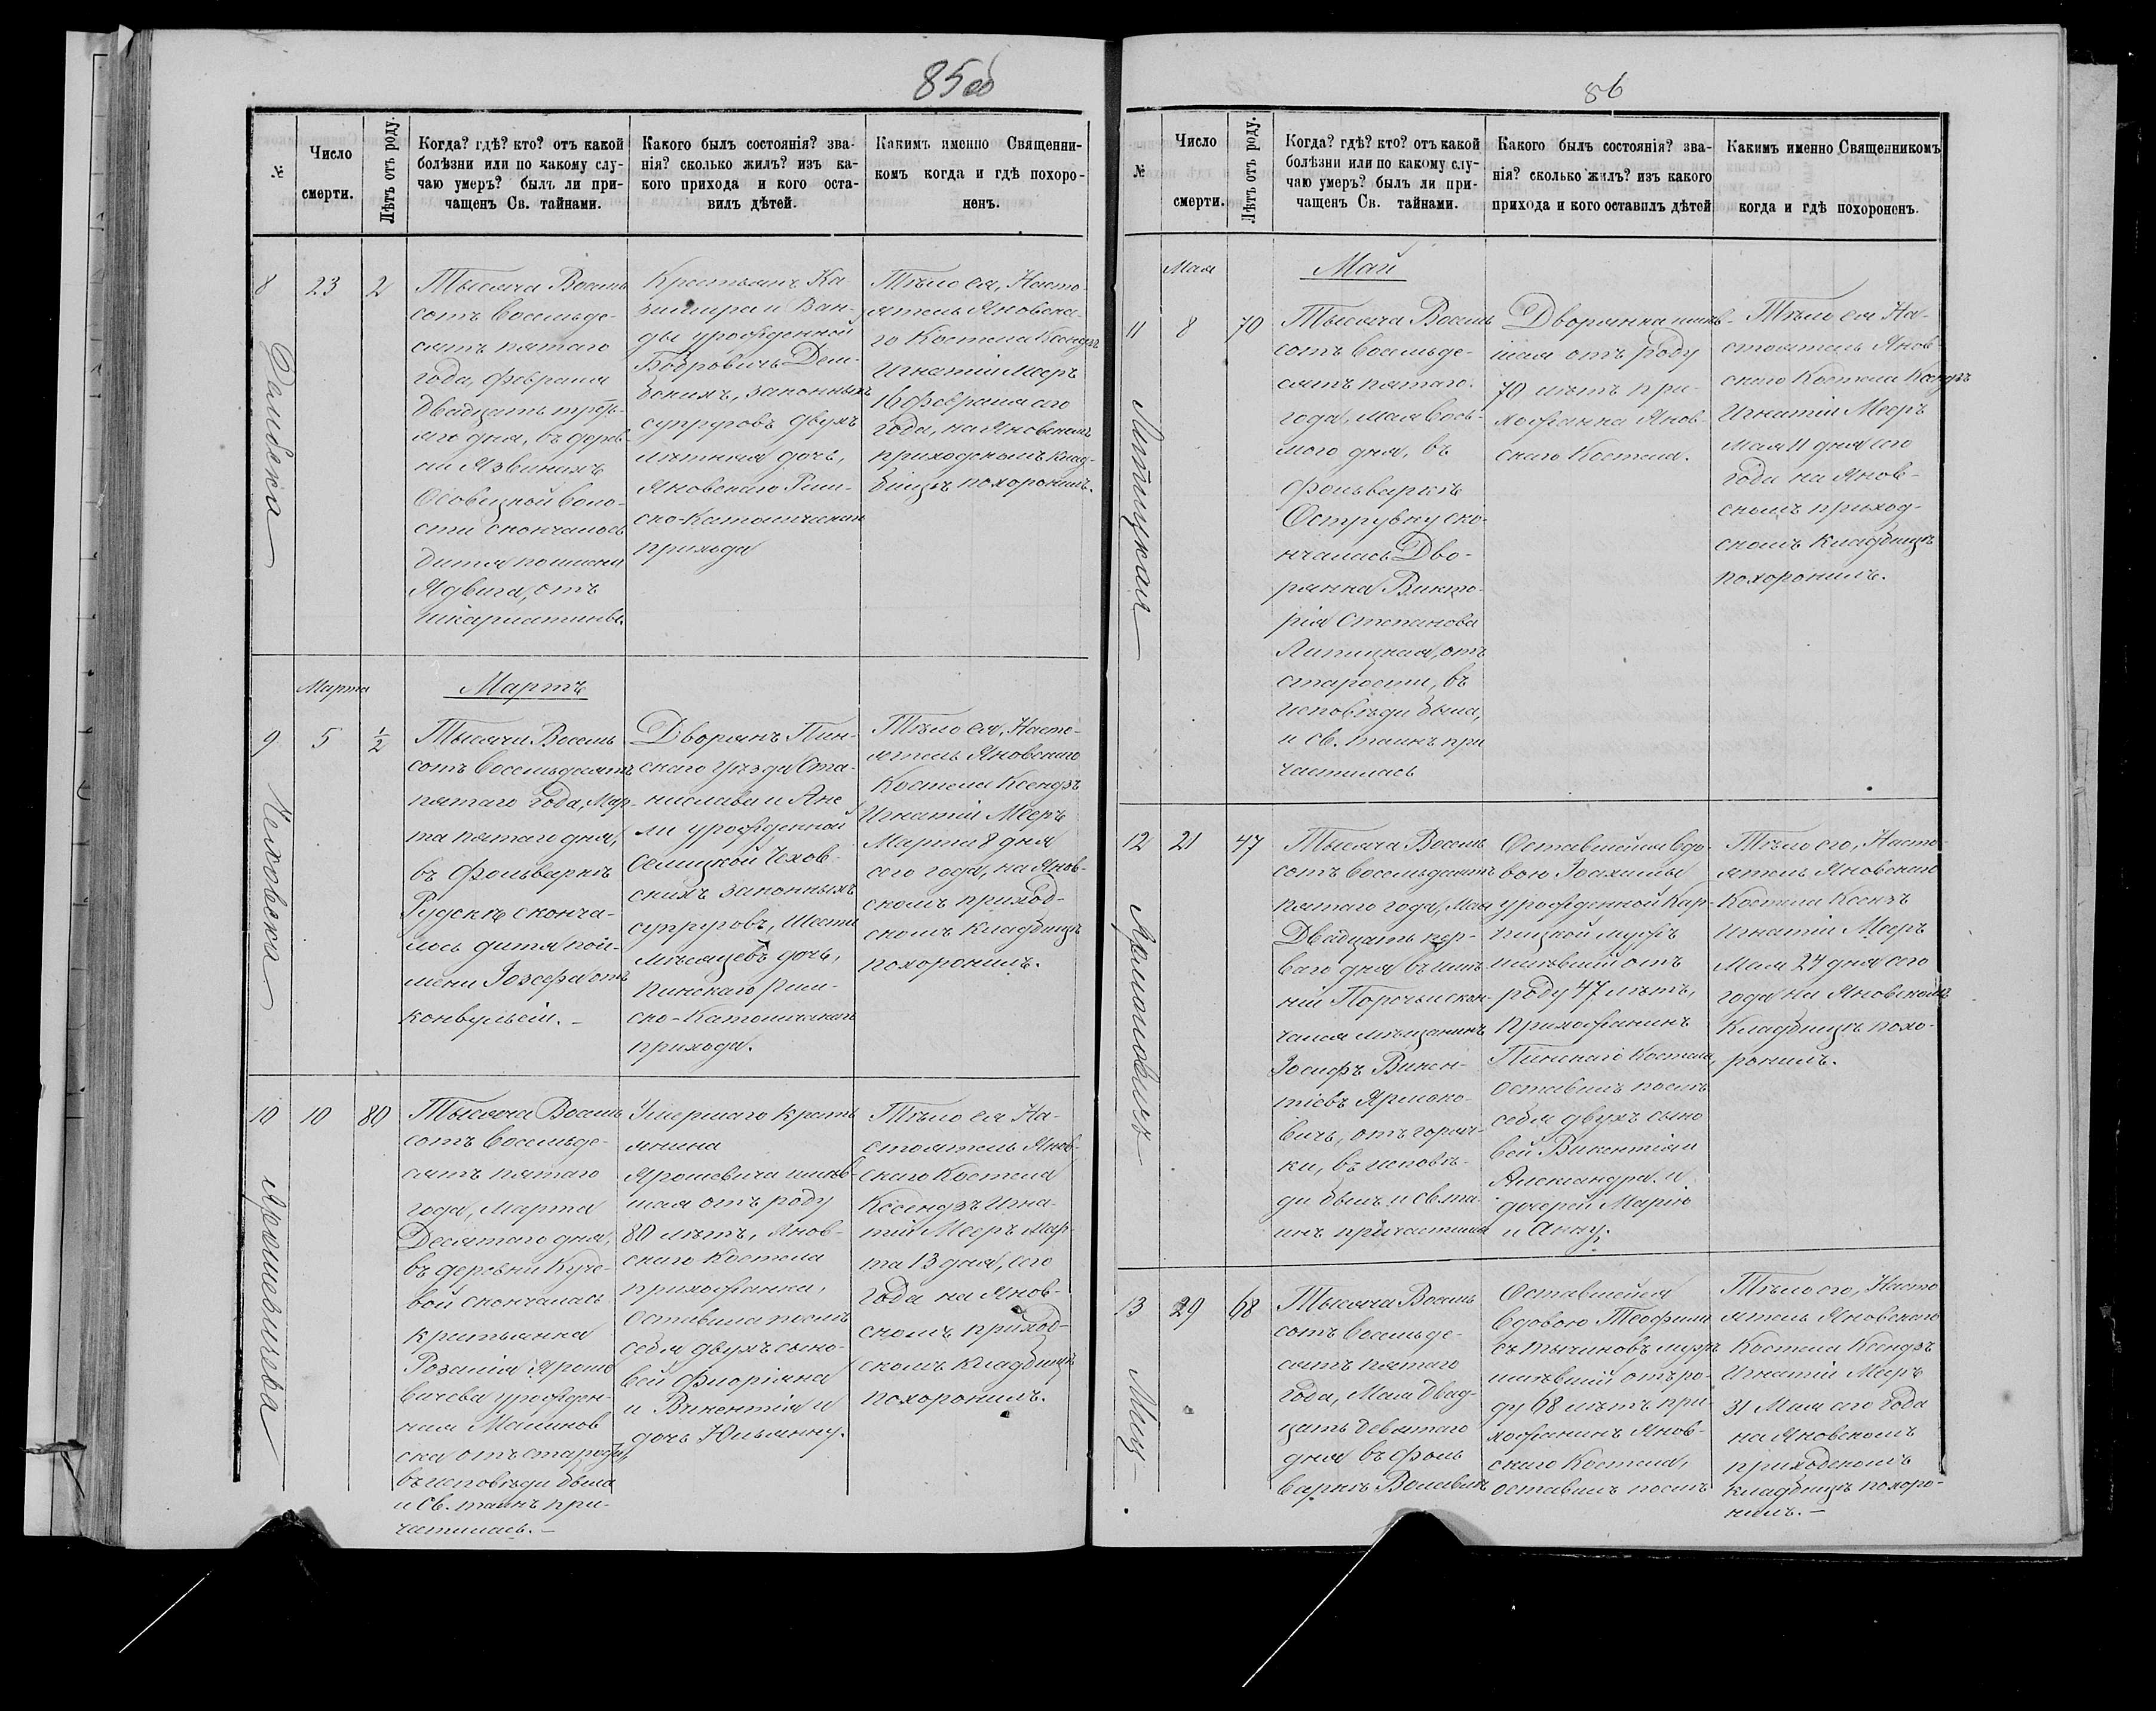 85об
№
Число
смерти.
Лѣтъ отъ роду.
Когда? гдѣ? кто? отъ какой
болѣзни или по какому слу-
чаю умеръ? былъ ли при-
чащенъ Св. тайнами.
Какого былъ состоянія? зва-
нія? сколько жилъ? изъ ка-
кого прихода и кого оста-
вилъ дѣтей.
Какимъ именно Священни-
комъ когда и гдѣ похоро-
ненъ.
8
23
2
Тысяча Восемь
сотъ восемьде-
сятъ пятаго
года, февраля
двадцать треть-
яго дня, въ дерев-
ни Язвинахъ
Осовецкой воло-
сти скончалось
дитя по имени
Ядвига, отъ
шкарлатины.
Крестьянъ Ка-
зимира и Ван-
ды урожденной
Бобровичъ Дем-
бскихъ, законныхъ
супруговъ двухъ
лѣтняя дочь,
Яновскаго Рим-
ско-Католическаго
прихода
Тѣло ея, Насто-
ятель Яновска-
го Костела Ксендзъ
Игнатій Мееръ
16 февраля сего
года, на Яновскомъ
приходскомъ клад-
бищѣ похоронилъ.
Марта
Мартъ
9
Чеховска
5
1/2
Тысяча Восемь
сотъ восемьдесятъ
пятаго года, Мар-
та пятаго дня,
въ фольваркѣ
Рудскѣ сконча-
лось дитя по и-
мени Іозефа отъ
конвульсій. –
Дворянъ Пин-
скаго Уѣзда Ста-
нислава и Ане
ли урожденной
Селицкой Чехов-
скихъ законныхъ
супруговъ, шести
мѣсяцевъ дочь,
Пинскаго Рим-
ско-Католическаго
прихода.
Тѣло ея, Насто-
ятель Яновскаго
Костела Ксендзъ
Игнатій Мееръ
Марта 8 дня
сего года, на Янов-
скомъ приход-
скомъ кладбищѣ
похоронилъ.
10
Ярошевичева
10
80
Тысяча Восемь
сотъ восемьде-
сятъ пятаго
года, Марта
Десятаго дня,
въ деревни Куче-
вой скончалась
крестьянка
Розалія Яроше
вичева урожден-
ная Малинов
ска отъ старости,
въ исповѣди была
и Св. таинъ при-
частилась. –
Умершаго кресть
янина
Ярошевича имѣв-
шая отъ роду
80 лѣтъ, Янов-
скаго Костела
прихожанка,
Оставила послѣ
себя двухъ сыно-
вей Флоріяна
и Викентія и
дочь Юльянну.
Тѣло ея На-
стоятель Янов-
скаго Костела
Ксендзъ Игна-
тій Мееръ Мар-
та 13 дня, сего
года на Янов-
скомъ приход-
скомъ кладбищѣ
похоронилъ.
86
№
Число
смерти.
Лѣтъ отъ роду.
Когда? гдѣ? кто? отъ какой
болѣзни или по какому слу-
чаю умеръ? былъ ли при-
чащенъ Св. тайнами.
Какого былъ состоянія? зва-
нія? сколько жилъ? изъ какого
прихода и кого оставилъ дѣтей
Какимъ именно Священникомъ
когда и гдѣ похороненъ.
Мая
Май
11
8
70
Тысяча Восемь
сотъ восемьде-
сятъ пятаго
года, мая вось-
мого дня, въ
фольваркѣ
Острувку ско-
нчалась Дво-
рянка Викто-
рія Степанова
Липицкая, отъ
старости, въ
исповѣди была,
и св. таинъ при
частилась
Дворянка имѣв-
шая отъ роду
70 лѣтъ при-
хожанка Янов-
скаго Костела.
Тѣло ея На-
стоятель Янов-
скаго Костела Ксендзъ
Игнатій Мееръ
Мая 11 дня сего
года на Янов-
скомъ приход-
скомъ кладбищѣ
похоронилъ.
12
21
47
Тысяча Восемь
сотъ восемьдесятъ
пятаго года, Мая
Двадцать пер-
ваго дня въ имѣ-
ніи Поречьи скон-
чался мѣщанинъ
Іосифъ Викен-
тіевъ Ярмоло-
вичъ, отъ горяч-
ки, въ исповѣ-
ди былъ и св. та-
инъ причастился
Оставшейся вдо-
вою Іоахимы
урожденной Кар-
пицкой мужъ
имѣвшій отъ
роду 47 лѣтъ,
Прихожанинъ
Пинскаго Костела,
оставилъ послѣ
себя двухъ сыно
вей Викентія и
Александра и
дочерей Марію
и Анну.
Тѣло его, Насто-
ятель Яновскаго
Костела Ксензъ
Игнатій Мееръ
Мая 24 дня сего
года на Яновскомъ
Кладбищѣ похо-
ронилъ.
13
Миц
29
68
Тысяча Восемь
сотъ восемьде-
сятъ пятаго
года, Мая двад-
цать девятаго
дня въ фоль
Оставшейся
вдовою Теофили
мужъ
имѣвшій отъ ро-
ду 68 лѣтъ при-
хожанинъ Янов-
скаго Костела,
оставилъ послѣ
Тѣло его, Насто
ятель Яновскаго
Костела Ксендзъ
Игнатій Мееръ
31 Мая сего года
на Яновскомъ
приходскомъ
кладбищѣ похоро-
нилъ. –